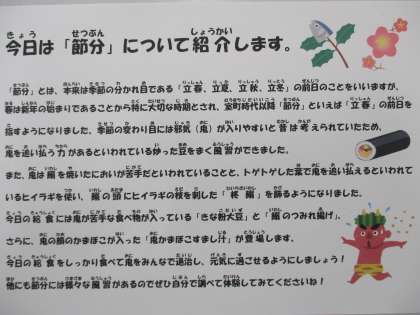 今日は「節分」について紹介します。
「節分」とは、本来は季節の分かれ目である「立春、立夏、立秋、立冬」の前日のことをいいますが、
春は新年の始まりであることから特に大切な時期とされ、室町時代以降「節分」といえば「立春」の前日を
指すようになりました。季節の変わり目には邪気（鬼）が入りやすいと昔は考えられていたため、
鬼を追い払う力があるといわれている炒った豆をまく風習ができました。
また、鬼は鰯を焼いたにおいが苦手だといわれていることと、トゲトゲした葉で鬼を追い払えるといわれて
いるヒイラギを使い、鰯の頭にヒイラギの枝を刺した「柊鰯」を飾るようになりました。
今日の給食には鬼が苦手な食べ物が入っている「きな粉大豆」と「鰯のつみれ揚げ」、
さらに、鬼の顔のかまぼこが入った「鬼かまぼこすまし汁」が登場します。
今日の給食をしっかり食べて鬼をみんなで退治し、元気に過ごせるようにしましょう！
他にも節分には様々な風習があるのでぜひ自分で調べて体験してみてくださいね！